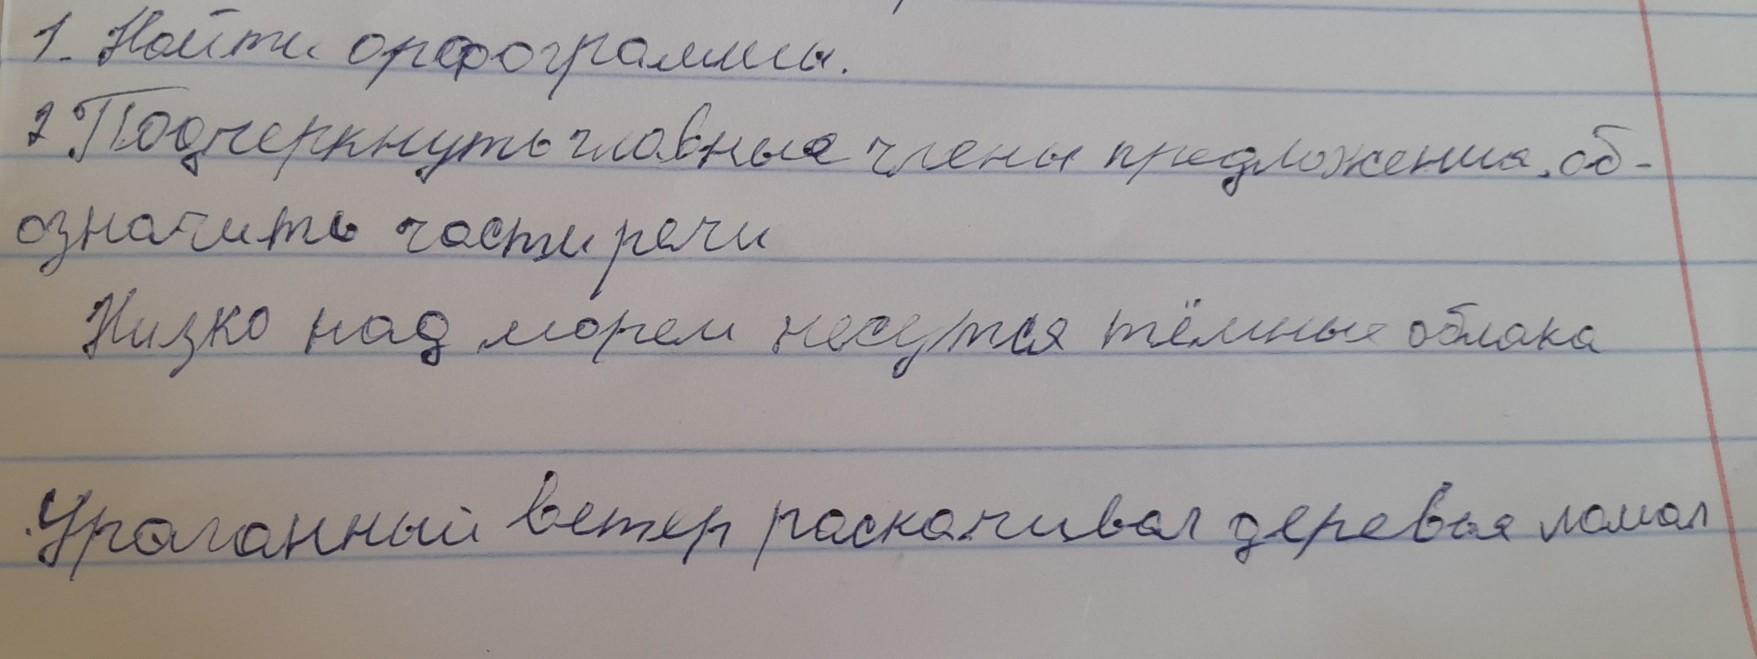 1. Найти орфограммы.
2 Подчеркнуть главные члены предложения, об-
означить части речи
Низко над морем несутся тёмные облака
Ураганный ветер раскачивал деревья ломал